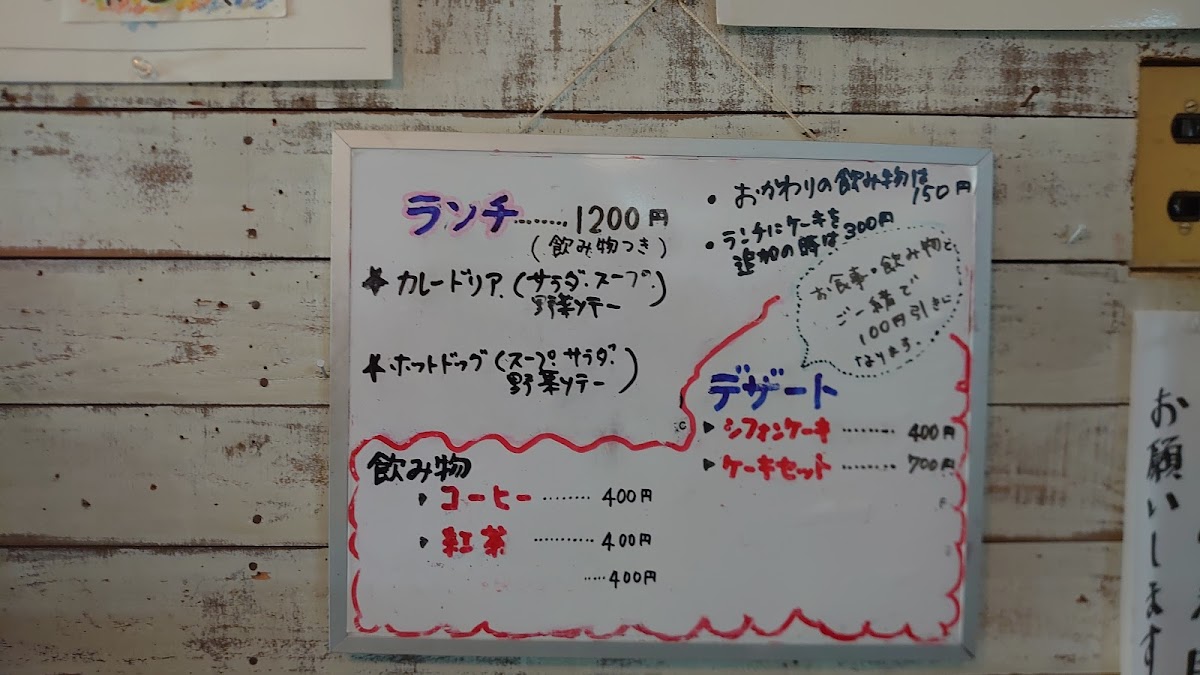 ランチ........1200円
(飲み物つき)
★カレードリア.(サラダ.スープ.
野菜ソテー)
★ホットドッグ(スープ.サラダ.
野菜ソテー)
・おかわりの飲み物は
150円
・ランチにケーキを
追加の時は300円
お食事・飲み物と
ご一緒で
100円引きに
なります.
デザート
▶シフォンケーキ........400円
▶ケーキセット........700円
飲み物
▶コーヒー........400円
▶紅茶..........400円
.....400円
お願いします